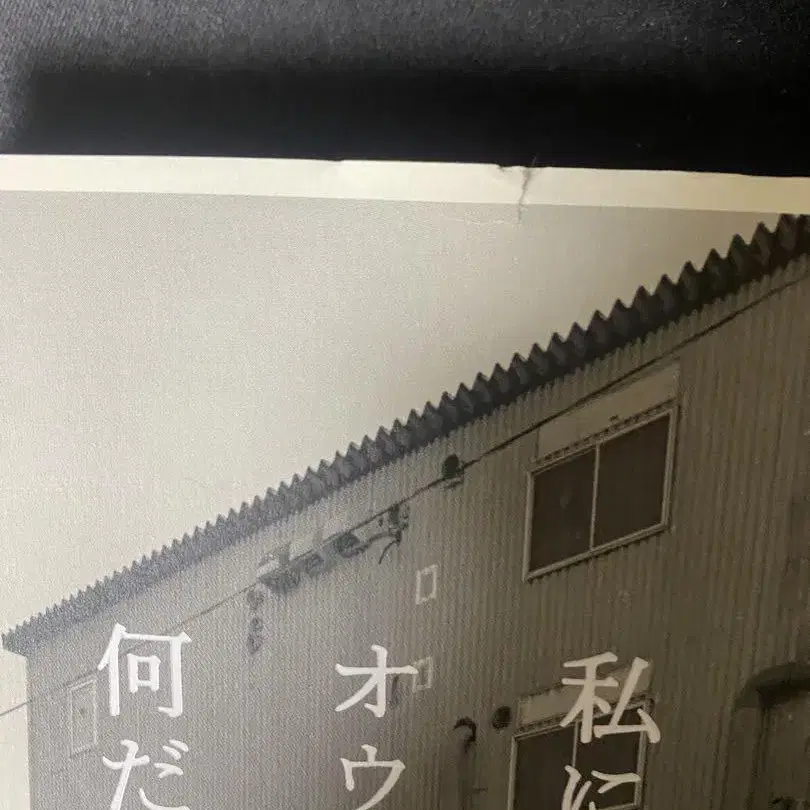 私に
オウ
何だ